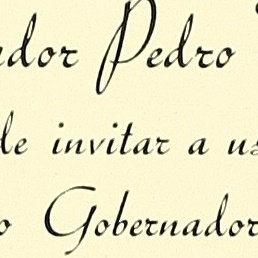 ador Pedro
de invitar a us
o Gobernador